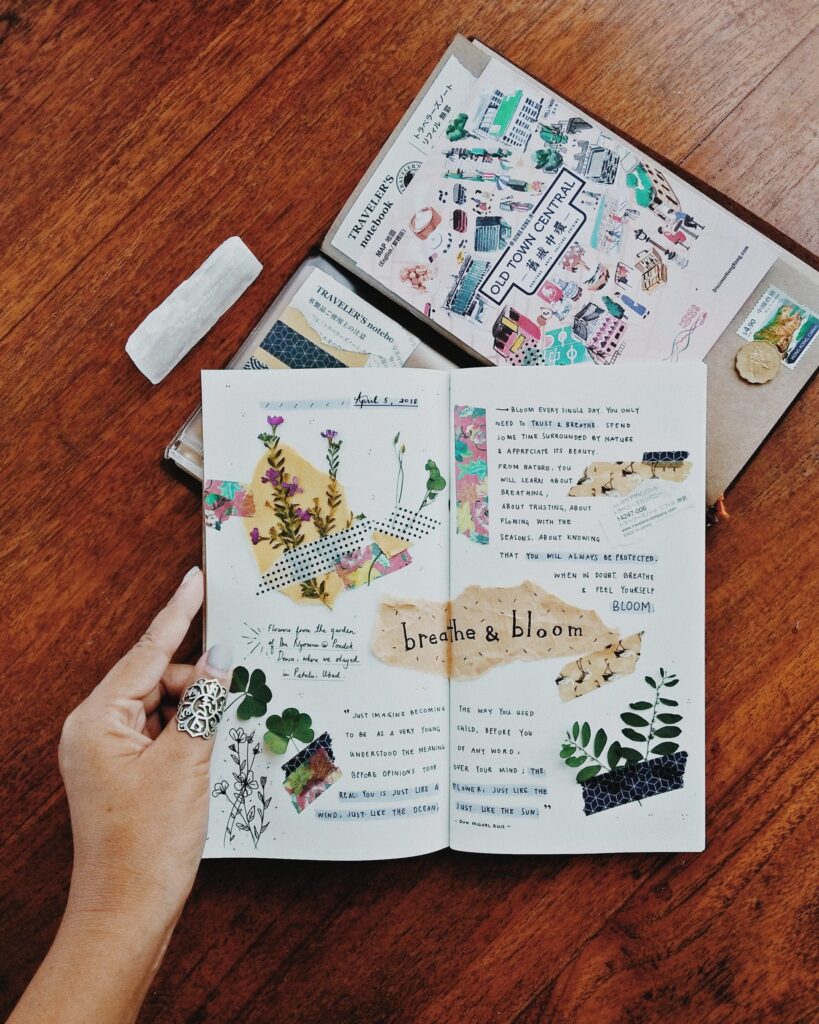 トラベラーズノート
リフィル 無罫
TRAVELER'S
notebook
MAP 地図
(English / 繁體版)
HONG KONG
OLD TOWN CENTRAL
舊城中環
DiscoverHongKong.com
$4.90
中國香港
HONG KONG, CHINA
TRAVELER'S notebo
革製品ご使用上の注意
April 5, 2018
→ BLOOM EVERY SINGLE DAY. YOU ONLY
NEED TO TRUST & BREATHE. SPEND
SOME TIME SURROUNDED BY NATURE
& APPRECIATE ITS BEAUTY.
FROM NATURE, YOU
WILL LEARN ABOUT
BREATHING,
ABOUT TRUSTING, ABOUT
FLOWING WITH THE
SEASONS, ABOUT KNOWING
THAT YOU WILL ALWAYS BE PROTECTED.
WHEN IN DOUBT, BREATHE
& FEEL YOURSELF
BLOOM.
14247-006
www.travelers-company.com
breathe & bloom
Flowers from the garden
of Ibu Nyoman @ Pondok
Dewa, where we stayed
in Petulu, Ubud.
"JUST IMAGINE BECOMING THE WAY YOU USED
TO BE AS A VERY YOUNG CHILD, BEFORE YOU
UNDERSTOOD THE MEANING OF ANY WORD,
BEFORE OPINIONS TOOK OVER YOUR MIND; THE
REAL YOU IS JUST LIKE A FLOWER, JUST LIKE THE
WIND, JUST LIKE THE OCEAN, JUST LIKE THE SUN."
- DON MIGUEL RUIZ -